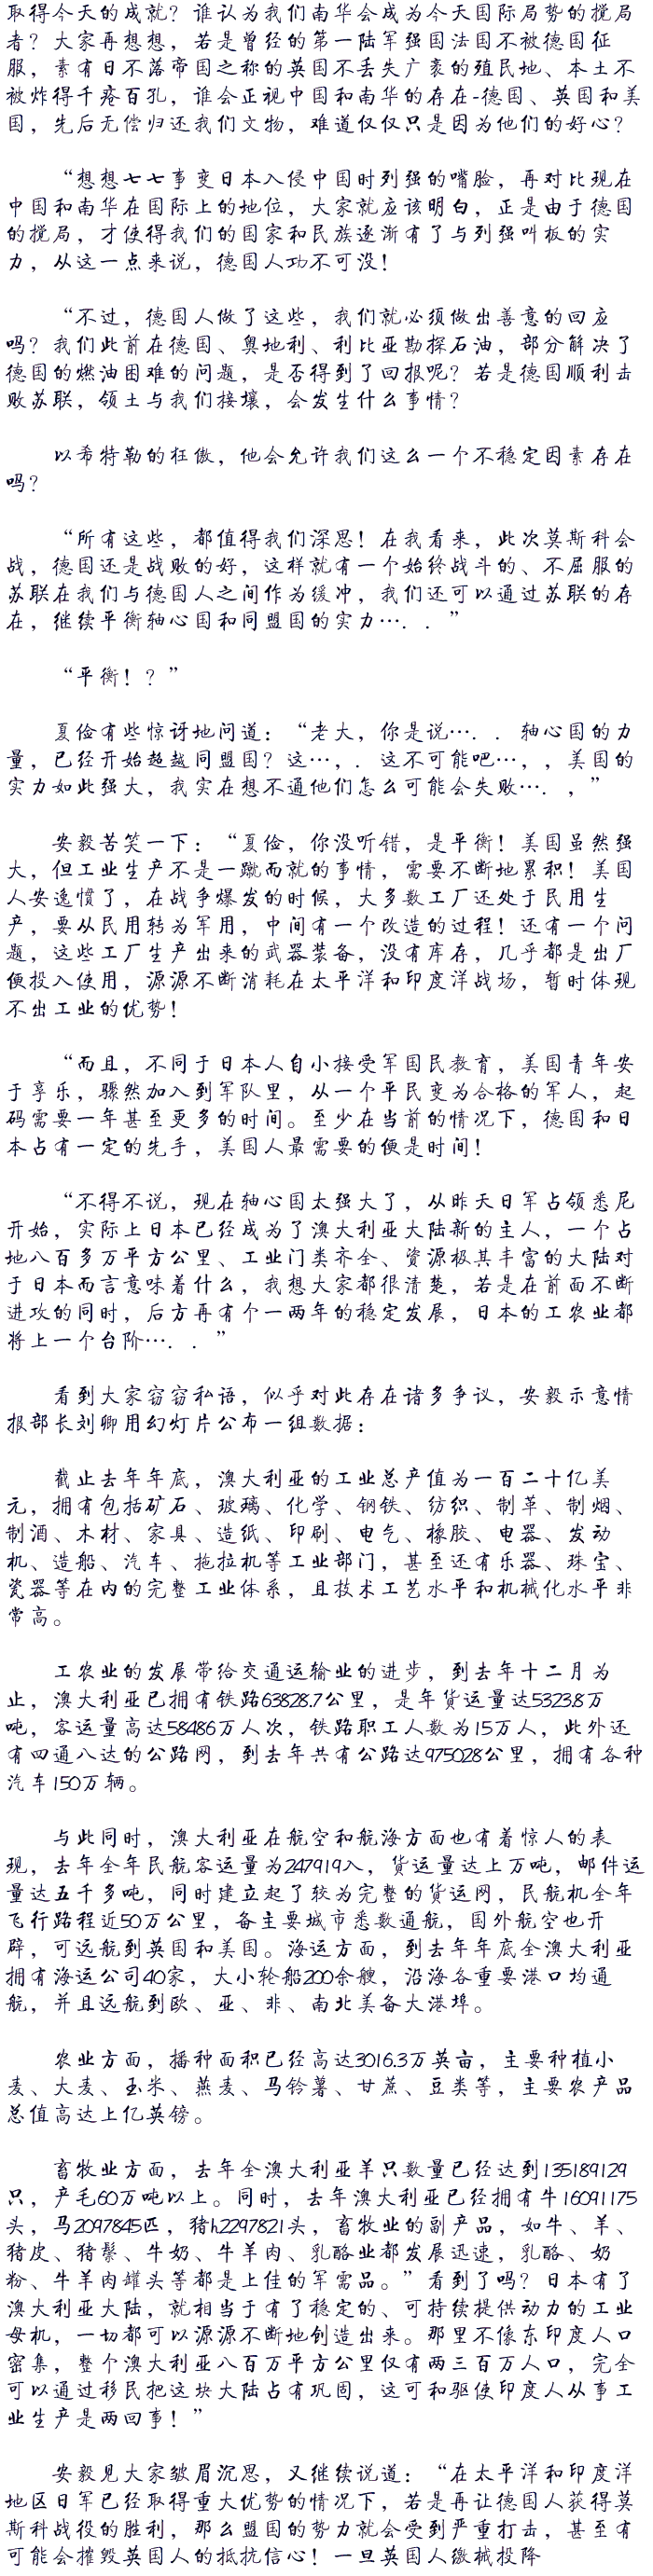 取得今天的成就？谁认为我们南华会成为今天国际局势的搅局
者？大家再想想，若是曾经的第一陆军强国法国不被德国征
服，素有日不落帝国之称的英国不丢失广袤的殖民地、本土不
被炸得千疮百孔，谁会正视中国和南华的存在-德国、英国和美
国，先后无偿归还我们文物，难道仅仅只是因为他们的好心？
“想想七七事变日本入侵中国时列强的嘴脸，再对比现在
中国和南华在国际上的地位，大家就应该明白，正是由于德国
的搅局，才使得我们的国家和民族逐渐有了与列强叫板的实
力，从这一点来说，德国人功不可没！
“不过，德国人做了这些，我们就必须做出善意的回应
吗？我们此前在德国、奥地利、利比亚勘探石油，部分解决了
德国的燃油困难的问题，是否得到了回报呢？若是德国顺利击
败苏联，领土与我们接壤，会发生什么事情？
以希特勒的枉傲，他会允许我们这么一个不稳定因素存在
吗？
“所有这些，都值得我们深思！在我看来，此次莫斯科会
战，德国还是战败的好，这样就有一个始终战斗的、不屈服的
苏联在我们与德国人之间作为缓冲，我们还可以通过苏联的存
在，继续平衡轴心国和同盟国的实力…．．”
“平衡！？”
夏俭有些惊讶地问道：“老大，你是说…．．轴心国的力
量，已经开始超越同盟国？这…，．这不可能吧…，，美国的
实力如此强大，我实在想不通他们怎么可能会失败…．，”
安毅苦笑一下：“夏俭，你没听错，是平衡！美国虽然强
大，但工业生产不是一蹴而就的事情，需要不断地累积！美国
人安逸惯了，在战争爆发的时候，大多数工厂还处于民用生
产，要从民用转为军用，中间有一个改造的过程！还有一个问
题，这些工厂生产出来的武器装备，没有库存，几乎都是出厂
便投入使用，源源不断消耗在太平洋和印度洋战场，暂时体现
不出工业的优势！
“而且，不同于日本人自小接受军国民教育，美国青年安
于享乐，骤然加入到军队里，从一个平民变为合格的军人，起
码需要一年甚至更多的时间。至少在当前的情况下，德国和日
本占有一定的先手，美国人最需要的便是时间！
“不得不说，现在轴心国太强大了，从昨天日军占领悉尼
开始，实际上日本已经成为了澳大利亚大陆新的主人，一个占
地八百多万平方公里、工业门类齐全、资源极其丰富的大陆对
于日本而言意味着什么，我想大家都很清楚，若是在前面不断
进攻的同时，后方再有个一两年的稳定发展，日本的工农业都
将上一个台阶…．．”
看到大家窃窃私语，似乎对此存在诸多争议，安毅示意情
报部长刘卿用幻灯片公布一组数据：
截止去年年底，澳大利亚的工业总产值为一百二十亿美
元，拥有包括矿石、玻璃、化学、钢铁、纺织、制革、制烟、
制酒、木材、家具、造纸、印刷、电气、橡胶、电器、发动
机、造船、汽车、拖拉机等工业部门，甚至还有乐器、珠宝、
瓷器等在内的完整工业体系，且技术工艺水平和机械化水平非
常高。
工农业的发展带给交通运输业的进步，到去年十二月为
止，澳大利亚已拥有铁路63828.7公里，是年货运量达5323.8万
吨，客运量高达58486万人次，铁路职工人数为15万人，此外还
有四通八达的公路网，到去年共有公路达975028公里，拥有各种
汽车150万辆。
与此同时，澳大利亚在航空和航海方面也有着惊人的表
现，去年全年民航客运量为247919入，货运量达上万吨，邮件运
量达五千多吨，同时建立起了较为完整的货运网，民航机全年
飞行路程近50万公里，备主要城市悉数通航，国外航空也开
辟，可远航到英国和美国。海运方面，到去年年底全澳大利亚
拥有海运公司40家，大小轮船200余艘，沿海各重要港口均通
航，并且远航到欧、亚、非、南北美备大港埠。
农业方面，播种面积已经高达3016.3万英亩，主要种植小
麦、大麦、玉米、燕麦、马铃薯、甘蔗、豆类等，主要农产品
总值高达上亿英镑。
畜牧业方面，去年全澳大利亚羊只数量已经达到135189129
只，产毛60万吨以上。同时，去年澳大利亚已经拥有牛16091175
头，马2097845匹，猪h2297821头，畜牧业的副产品，如牛、羊、
猪皮、猪鬃、牛奶、牛羊肉、乳酪业都发展迅速，乳酪、奶
粉、牛羊肉罐头等都是上佳的军需品。”看到了吗？日本有了
澳大利亚大陆，就相当于有了稳定的、可持续提供动力的工业
母机，一切都可以源源不断地创造出来。那里不像东印度人口
密集，整个澳大利亚八百万平方公里仅有两三百万人口，完全
可以通过移民把这块大陆占有巩固，这可和驱使印度人从事工
业生产是两回事！”
安毅见大家皱眉沉思，又继续说道：“在太平洋和印度洋
地区日军已经取得重大优势的情况下，若是再让德国人获得莫
斯科战役的胜利，那么盟国的势力就会受到严重打击，甚至有
可能会摧毁英国人的抵抗信心！一旦英国人缴械投降